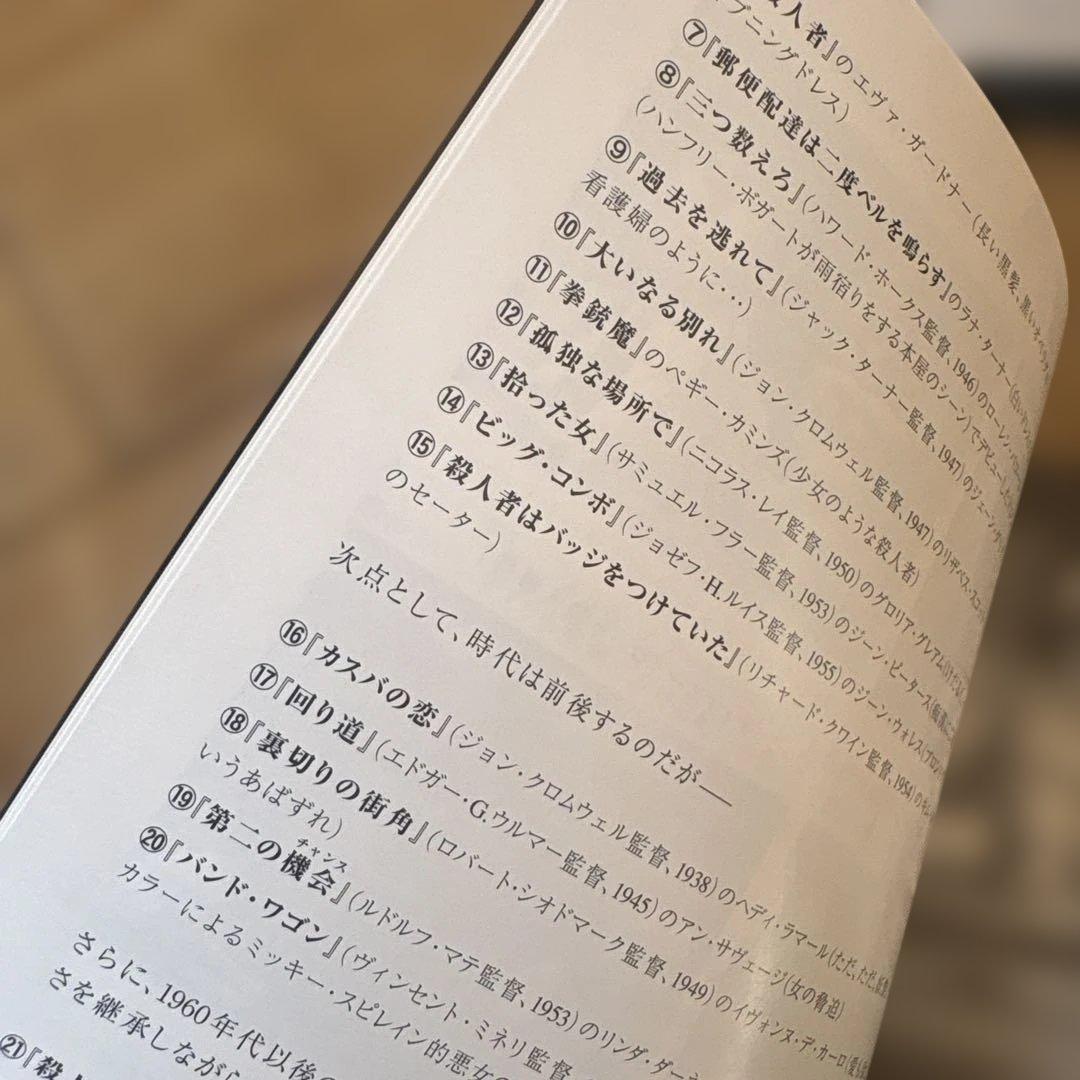 殺人者』のエヴァ・ガードナー(長い黒髪、黒いオペラ
プニングドレス)
⑦『郵便配達は二度ベルを鳴らす』のラナ・ターナー(白い
⑧『三つ数えろ』(ハワード・ホークス監督、1946)のローレン・バコ
(ハンフリー・ボガートが雨宿りをする本屋のシーン)でデビューした
⑨『過去を逃れて』(ジャック・ターナー監督、1947)のジェーン・
看護婦のように…)
⑩『大いなる別れ』(ジョン・クロムウェル監督、1947)のリザベス・スコ
⑪『拳銃魔』のペギー・カミンズ(少女のような殺人者)
⑫『孤独な場所で』(ニコラス・レイ監督、1950)のグロリア・グレアム
⑬『拾った女』(サミュエル・フラー監督、1953)のジーン・ピータース
⑭『ビッグ・コンボ』(ジョゼフ・H.ルイス監督、1955)のジーン・ウォレス(ブロン
⑮『殺人者はバッジをつけていた』(リチャード・クワイン監督、1954)のキム
のセーター)
次点として、時代は前後するのだが──
⑯『カスバの恋』(ジョン・クロムウェル監督、1938)のヘディ・ラマール(ただ、ただ、
⑰『回り道』(エドガー・G.ウルマー監督、1945)のアン・サヴェージ(女の脅迫)
⑱『裏切りの街角』(ロバート・シオドマーク監督、1949)のイヴォンヌ・デ・カーロ(愛
いうあばずれ)
⑲『第二の機会』(ルドルフ・マテ監督、1953)のリンダ・ダー
チャンス
⑳『バンド・ワゴン』(ヴィンセント・ミネリ監督
カラーによるミッキー・スピレイン的悪女の
さらに、1960年代以後の
さを継承しながら
㉑『殺